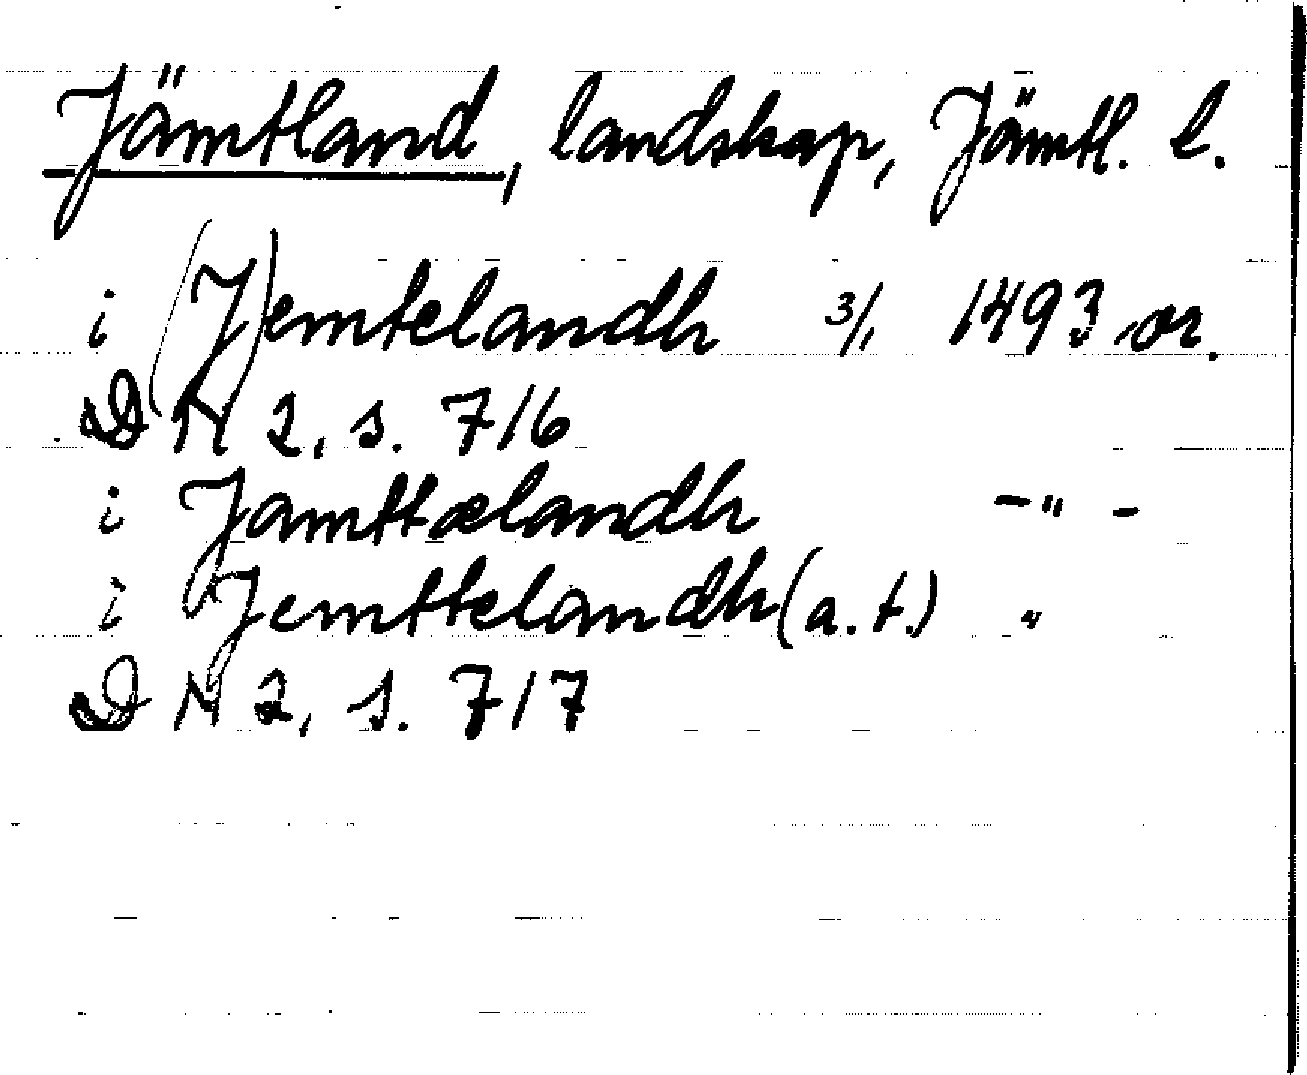 Jämtland, landskap, Jämtl. l.
i (J)emtelandh 3/1 1493 or.
DN 2, s. 716
i Jamttælandh -"-
i Jemttelandh (a. t.) "
DN 2, s. 717